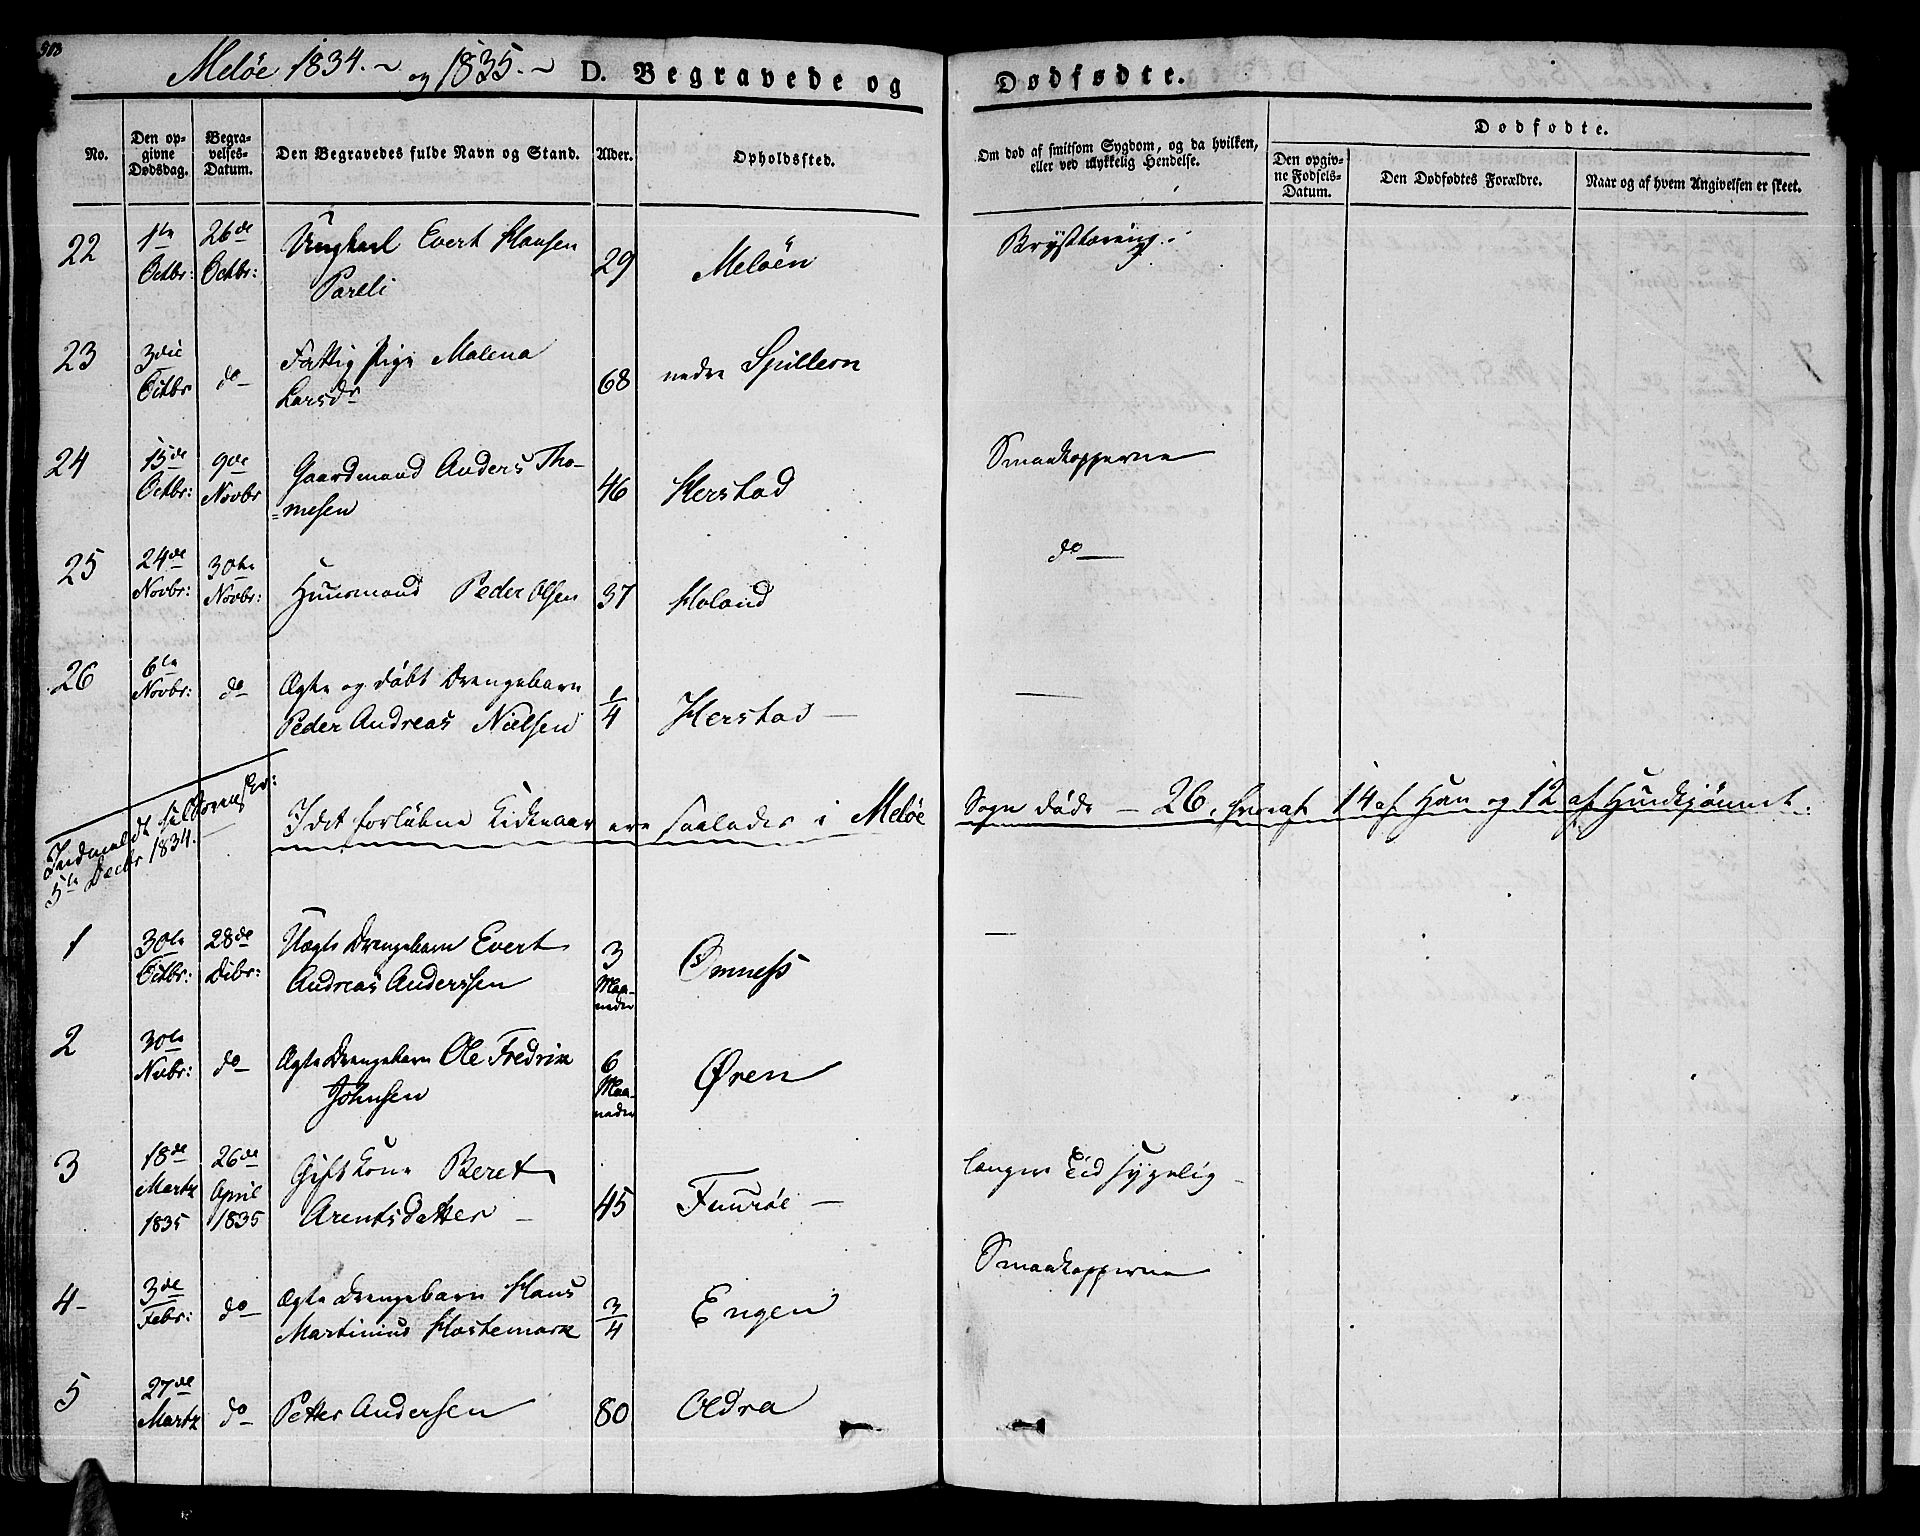 303
Meløe 1834. og 1835.
D. Begravede og Dødfødte.
No.
Den opgivne Dødsdag.
Begravelses-Datum.
Den Begravedes fulde Navn og Stand.
Alder.
Opholdssted.
Om død af smitsom Sygdom, og da hvilken, eller ved ulykkelig Hendelse.
Dødfødte.
Den opgivne Fødsels-Datum.
Den Dødfødtes Forældre.
Naar og af hvem Angivelsen er skeet.
22 1te Octbr: 26de Octbr: Ungkarl Evert Hansen Pareli 29 Meløen Brysttæring
23 3die Octbr do Fattig Pige Malena Larsdr 68 nedre Spilleren
24 15de Octbr: 9de Novbr Gaardmand Anders Tho-
=mesen 46 Herstad Smaakopperne
25 24de Novbr: 30te Novbr: Huusmand Peder Olsen 37 Holand do
26 6te Novbr: do Ægte og døbt Drengebarn
Peder Andreas Nielsen 1/4 Herstad —
Indmeldt til
5te Decbr 1834.
I det forløbne Kirkeaar ere saaledes i Meløe Sogn døde — 26, hvoraf 14 af Han og 12 af Hunkjønnet.
1 30te Octbr: 28de Dcbr: Uægte Drengebarn Evert
Andreas Anderssen 3 Maaneder Ømness —
2 30te Nvbr: do Ægte Drengebarn Ole Fredrik
Johnsen 6 Maaneder Øren
3 18de Martz 1835 26de April 1835 Gift Kone Beret
Arentsdatter 45 Fuurøe længere Tid sygelig
4 3de Febr: do Ægte Drengebarn Hans
Martinius Hostemark 3/4 Engen Smaakopperne
5 27de Martz do Petter Andersen 80 Oldra